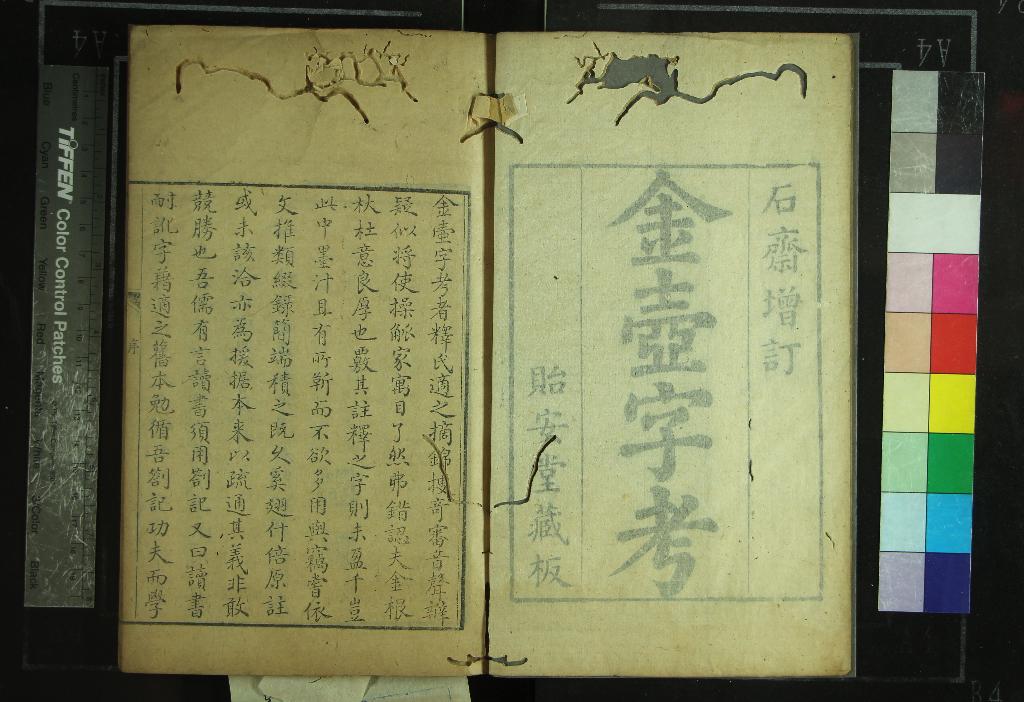 石齋增訂
金壺字考
貽安堂藏板
金壺字考者釋氏適之摘錦搜奇審音聲辯
疑似將使操觚家寓目了然弗錯認夫金根
杕杜意良厚也覈其註釋之字則未盈千豈
此中墨汁且有所靳而不欲多用與竊嘗依
文推類綴錄簡端積之既久奚翅什倍原註
或未該洽亦為援据本來以疏通其義非敢
競勝也吾儒有言讀書須用劄記又曰讀書
耐訛字藉適之舊本勉循吾劄記功夫而學
序
TIFFEN Color Control Patches
Centimetres
Blue
Cyan
Green
Yellow
Red
Magenta
White
3/Color
Black
A4
A4
B4